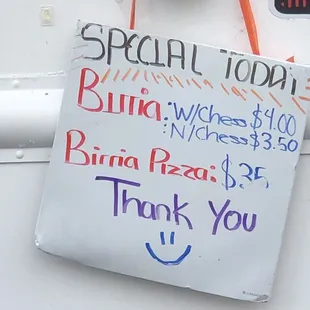 SPECIAL TODAY
Birria: W/Chess $4.00
N/Chess $3.50
Birria Pizza: $35
Thank You